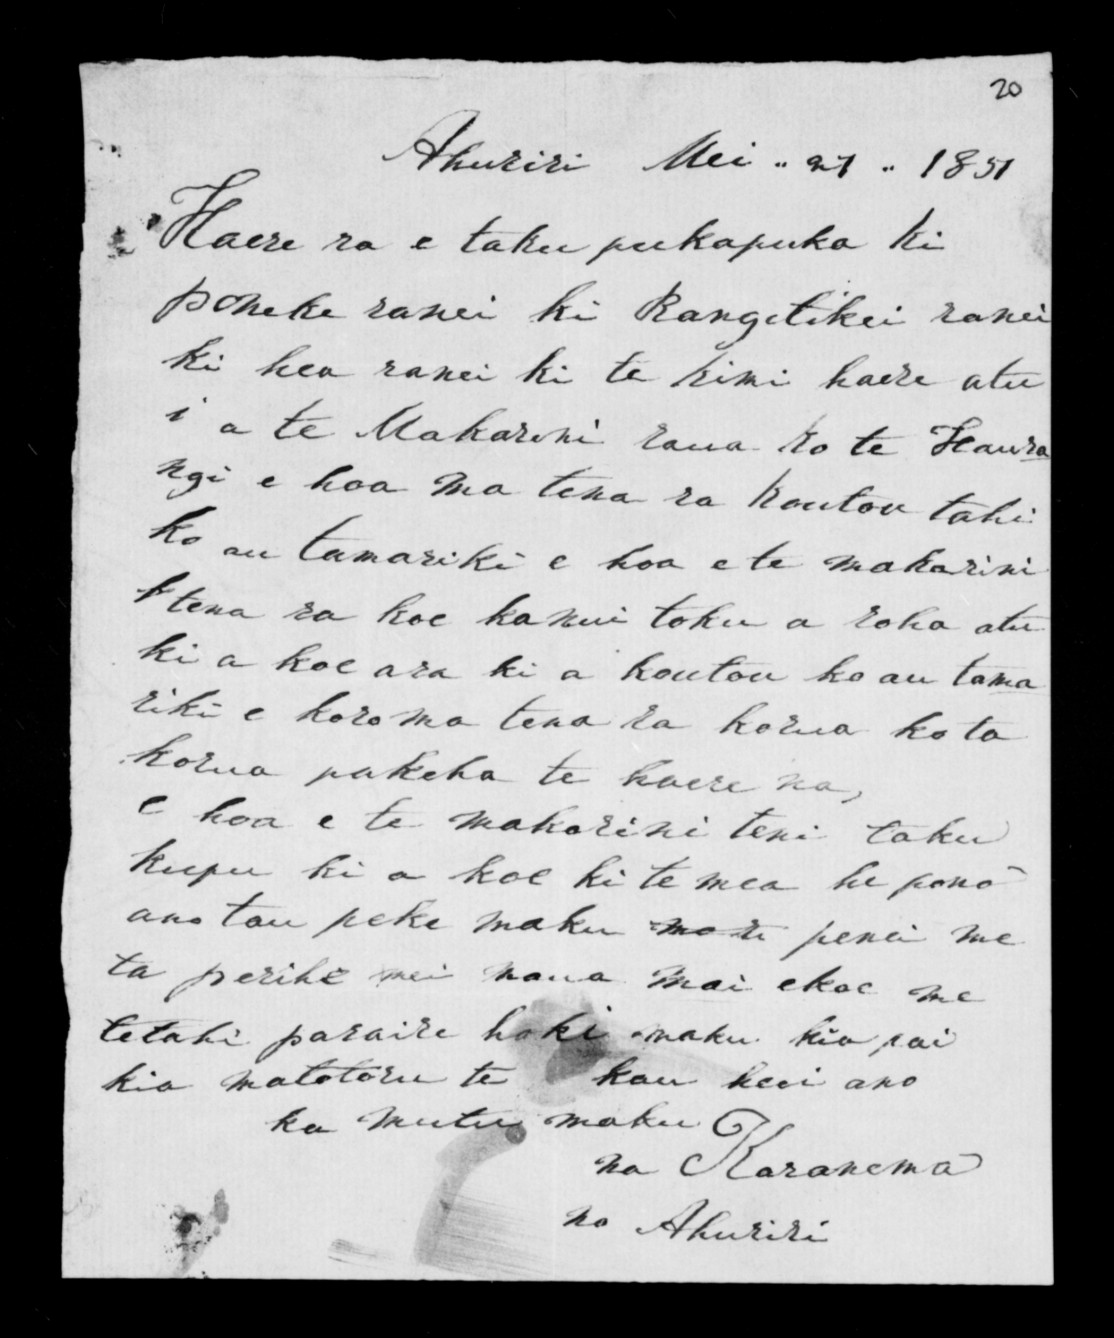 20
Ahuriri Mei .. 27 .. 1851
Haere ra e taku pukapuka ki
poneke ranei ki Rangitikei ranei
ki hea ranei ki te kimi haere atu
i a te Makarini raua ko te Haura
ngi e hoa ma tena ra koutou tahi
ko au tamariki e hoa e te makarini
tena ra koe kanui toku a roha atu
ki a koe ara ki a koutou ko au tama
riki e koro ma tena ra korua ko ta
korua pakeha te haere na,
e hoa e te makarini teni taku
kupu ki a koe ki te mea he pono
ano tau peke maku penei me
ta perihi mei maua mai ekoe me
tetahi paraire hoki maku kia pai
kia matotoru te kau heoi ano
ka mutu maku
na Karanema
no Ahuriri